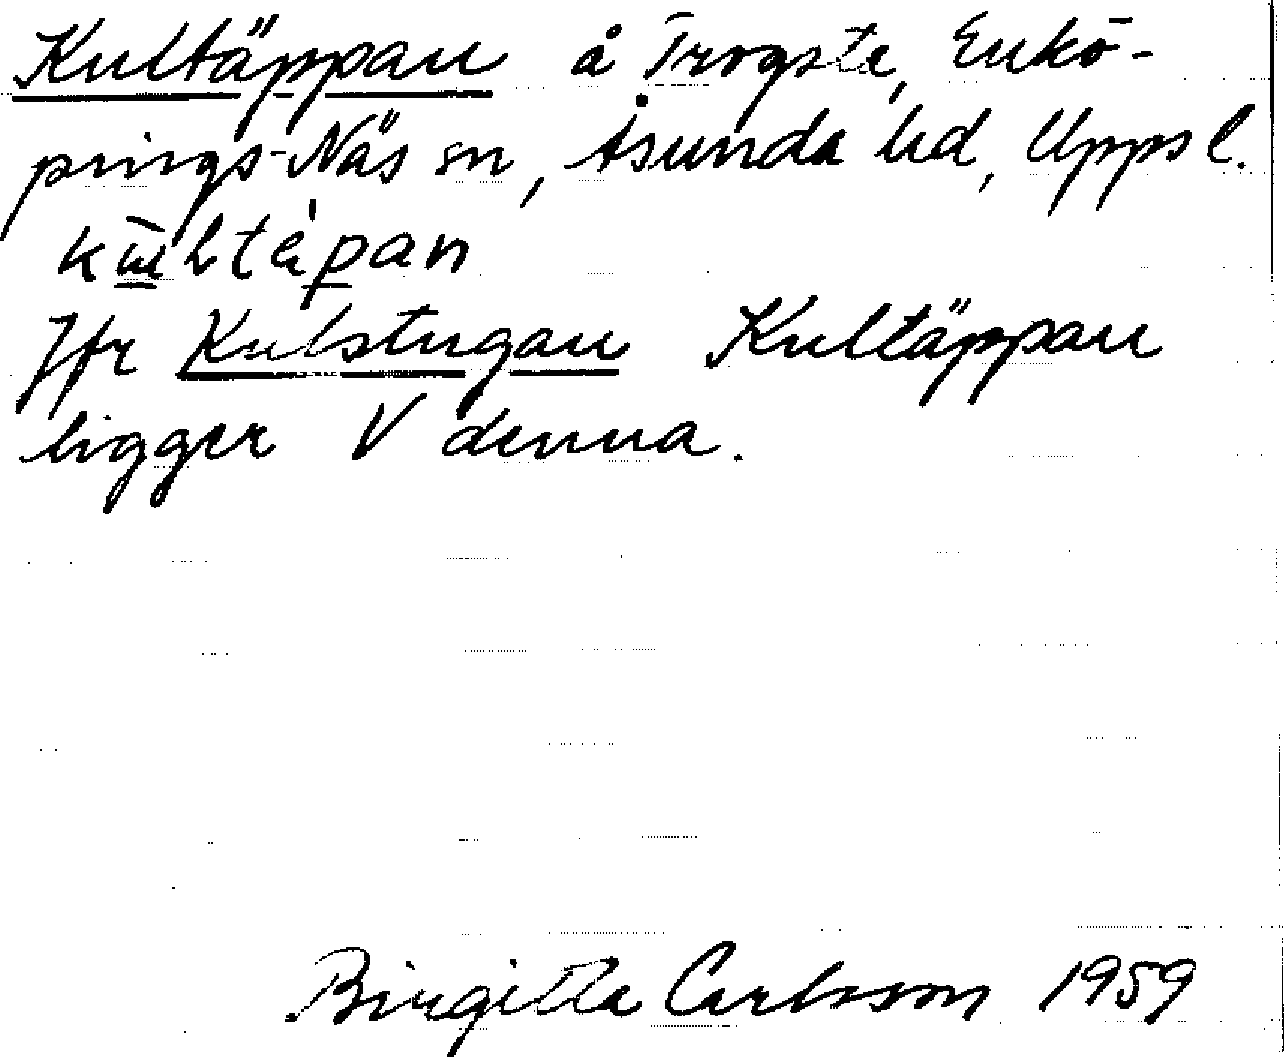 Kultäppan å Trogsta, Enkö-
pings-Näs sn, Åsunda hd, Uppsl.
Jfr Kulstugan Kultäppan
ligger V denna.
Birgitta Carlsson 1959